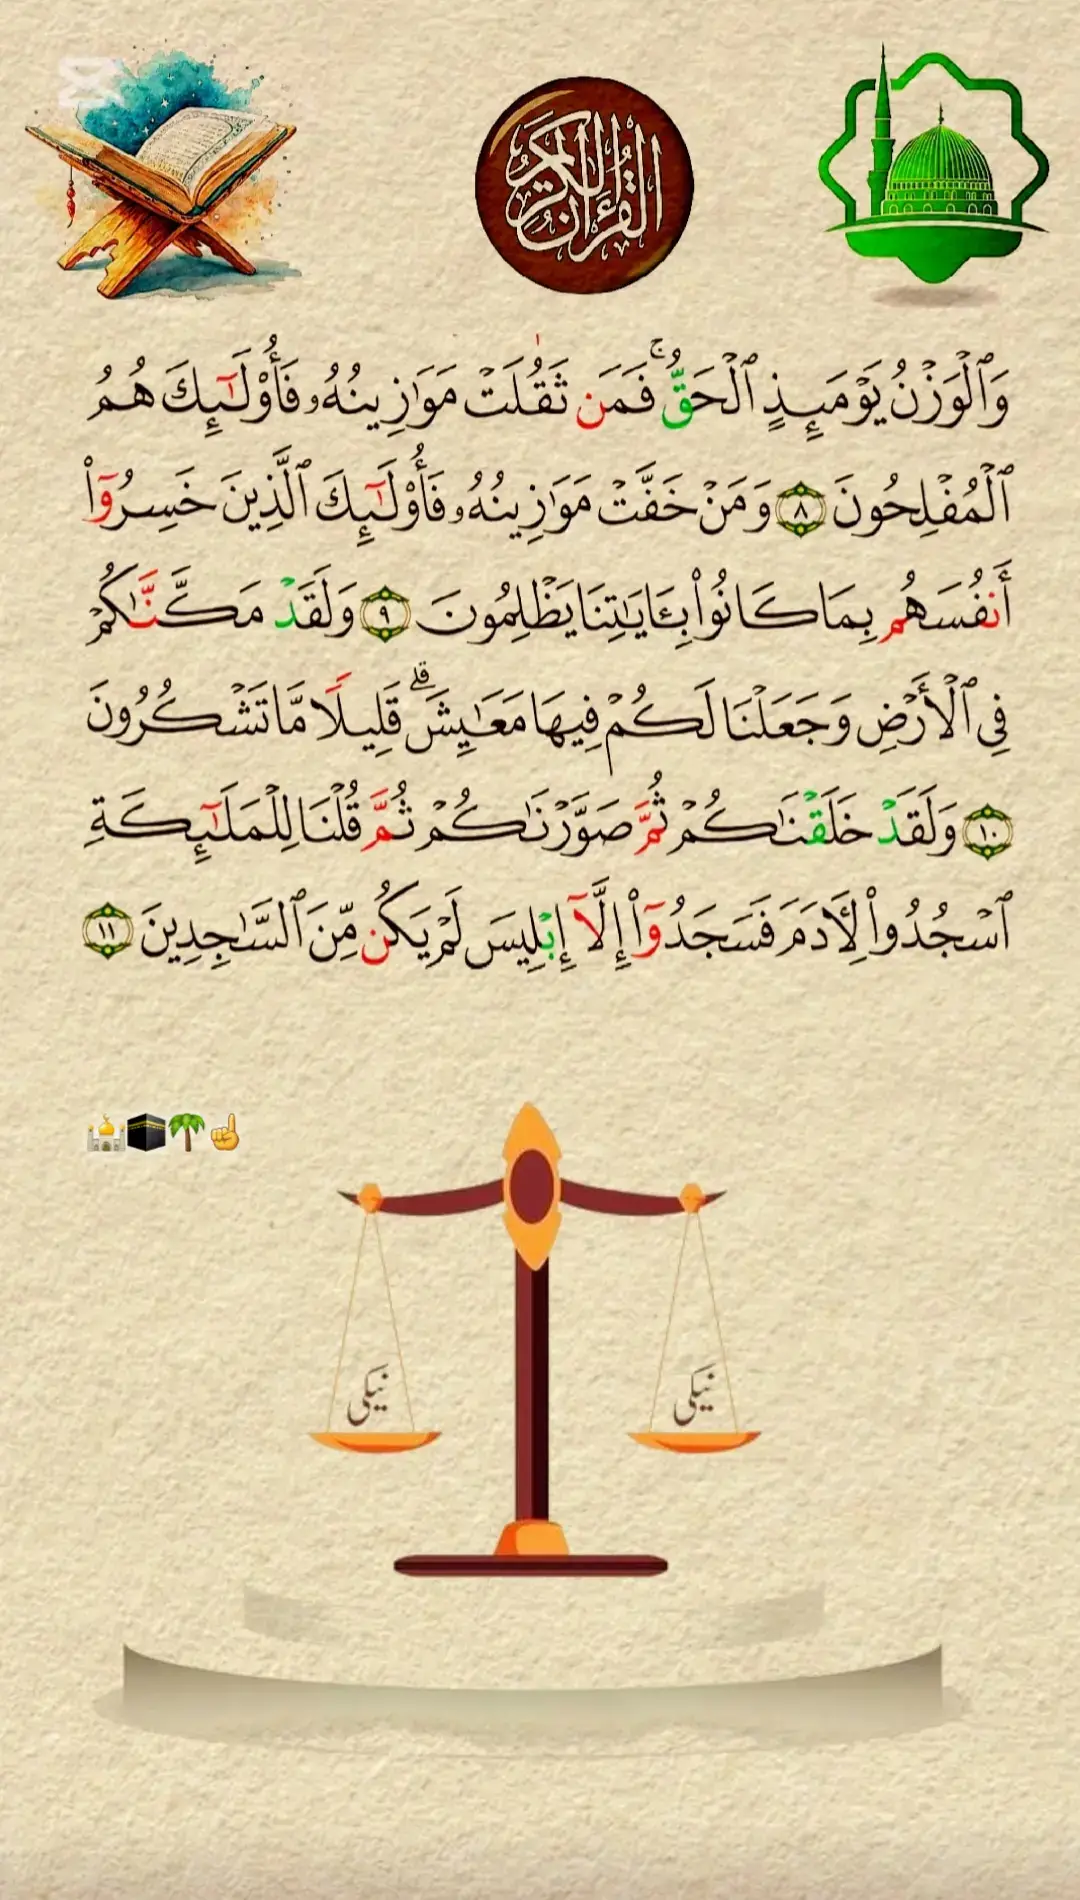 القرآن الكريم
وَٱلْوَزْنُ يَوْمَئِذٍ ٱلْحَقُّ ۚ فَمَن ثَقُلَتْ مَوَٰزِينُهُۥ فَأُو۟لَـٰٓئِكَ هُمُ
ٱلْمُفْلِحُونَ ٨ وَمَنْ خَفَّتْ مَوَٰزِينُهُۥ فَأُو۟لَـٰٓئِكَ ٱلَّذِينَ خَسِرُوٓا۟
أَنفُسَهُم بِمَا كَانُوا۟ بِـَٔايَـٰتِنَا يَظْلِمُونَ ٩ وَلَقَدْ مَكَّنَّـٰكُمْ
فِى ٱلْأَرْضِ وَجَعَلْنَا لَكُمْ فِيهَا مَعَـٰيِشَ ۗ قَلِيلًا مَّا تَشْكُرُونَ
١٠ وَلَقَدْ خَلَقْنَـٰكُمْ ثُمَّ صَوَّرْنَـٰكُمْ ثُمَّ قُلْنَا لِلْمَلَـٰٓئِكَةِ
ٱسْجُدُوا۟ لِـَٔادَمَ فَسَجَدُوٓا۟ إِلَّآ إِبْلِيسَ لَمْ يَكُن مِّنَ ٱلسَّـٰجِدِينَ ١١
نیکی نیکی